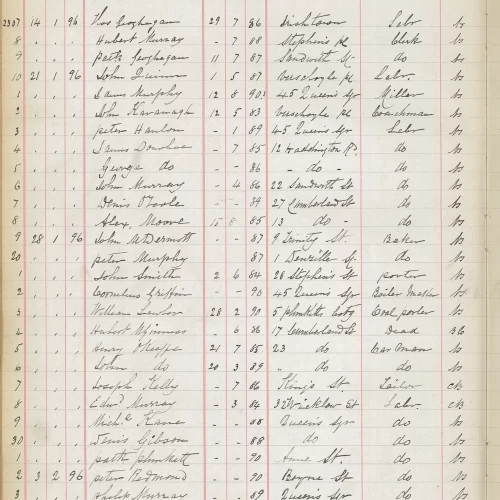 2307 14 1 96 Thos Geoghegan 29 7 86 Irishtown Labr bs
8 , , , Hubert Murray - 7 88 Stephens pl Clerk bs
9 , , , Patk Geoghegan 11 7 87 Sandwith St do bs
10 21 1 96 John Quinn 1 5 87 Verschoyle pl Labr. bs
1 , , , James Murphy 12 8 90 45 Queens Sqr Miller bs
2 , , , John Kavanagh 12 5 83 Verschoyle pl Coachman bs
3 , , , Peter Hanlon - 1 89 45 Queens Sqr Labr bs
4 , , , James Donohoe - 7 85 12 Haddington Rd do bs
5 , , , George do - - 86 - do - do bs
6 , , , John Murray - 4 86 22 Sandwith St do bs
7 , , , Denis O'Toole - - 89 27 Cumberland St do bs
8 , , , Alex. Moore 15 8 85 13 - do - do bs
9 28 1 96 John McDermott - - 87 9 Trinity St. Baker bs
20 , , , Peter Murphy 87 1 Denzille St do bs
1 , , , John Smith 2 6 84 28 Stephens St porter bs
2 , , , Cornelius Griffin - - 90 45 Queens Sqr Boiler Maker bs
3 , , , William 28 2 90 5 Plunketts Cotg Coal porter bs
4 , , , Hubert McGinness . 6 36 17 Cumberland St Dead B6
5 , , , Henry O'Keeffe 21 7 85 23 do Car Man bs
6 , , , John do 20 3 89 " do do bs
7 , , , Joseph Kelly - 7 86 Kings St Tailor ck
8 , , , Edwd Murray - 3 84 32 Wicklow St Labr. ck
9 , , , Michl Kane - - 88 Queens Sqr do bs
30 , , , Denis Gibson - - 88 do do bs
1 , , , Patk Plunkett - - 90 Anne St. do bs
2 3 2 96 Peter Redmond - - 90 Boyne St do bs
3 , , , Murray - - 89 Queens Sqr do bs